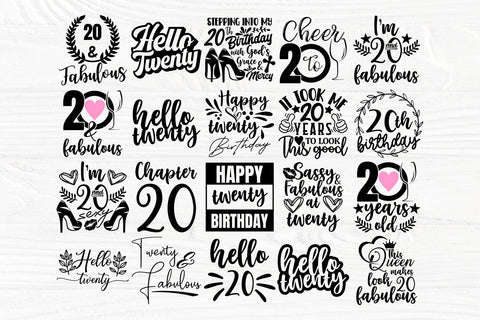 20
&
Fabulous
Hello
Twenty
STEPPING INTO MY
20th Birthday
with God's
Grace &
Mercy
Cheer
20
To
I'm
20 and
fabulous
20
&
fabulous
hello
twenty
Happy
twenty
Birthday
IT TOOK ME
20
YEARS
TO LOOK
This good
20th
birthday
I'm
20 and
sexy
Chapter
20
HAPPY
twenty
BIRTHDAY
Sassy
&
Fabulous
at
twenty
20
years
old
Hello
twenty
Twenty
&
Fabulous
hello
20
hello
twenty
This
Queen
makes
look 20
fabulous